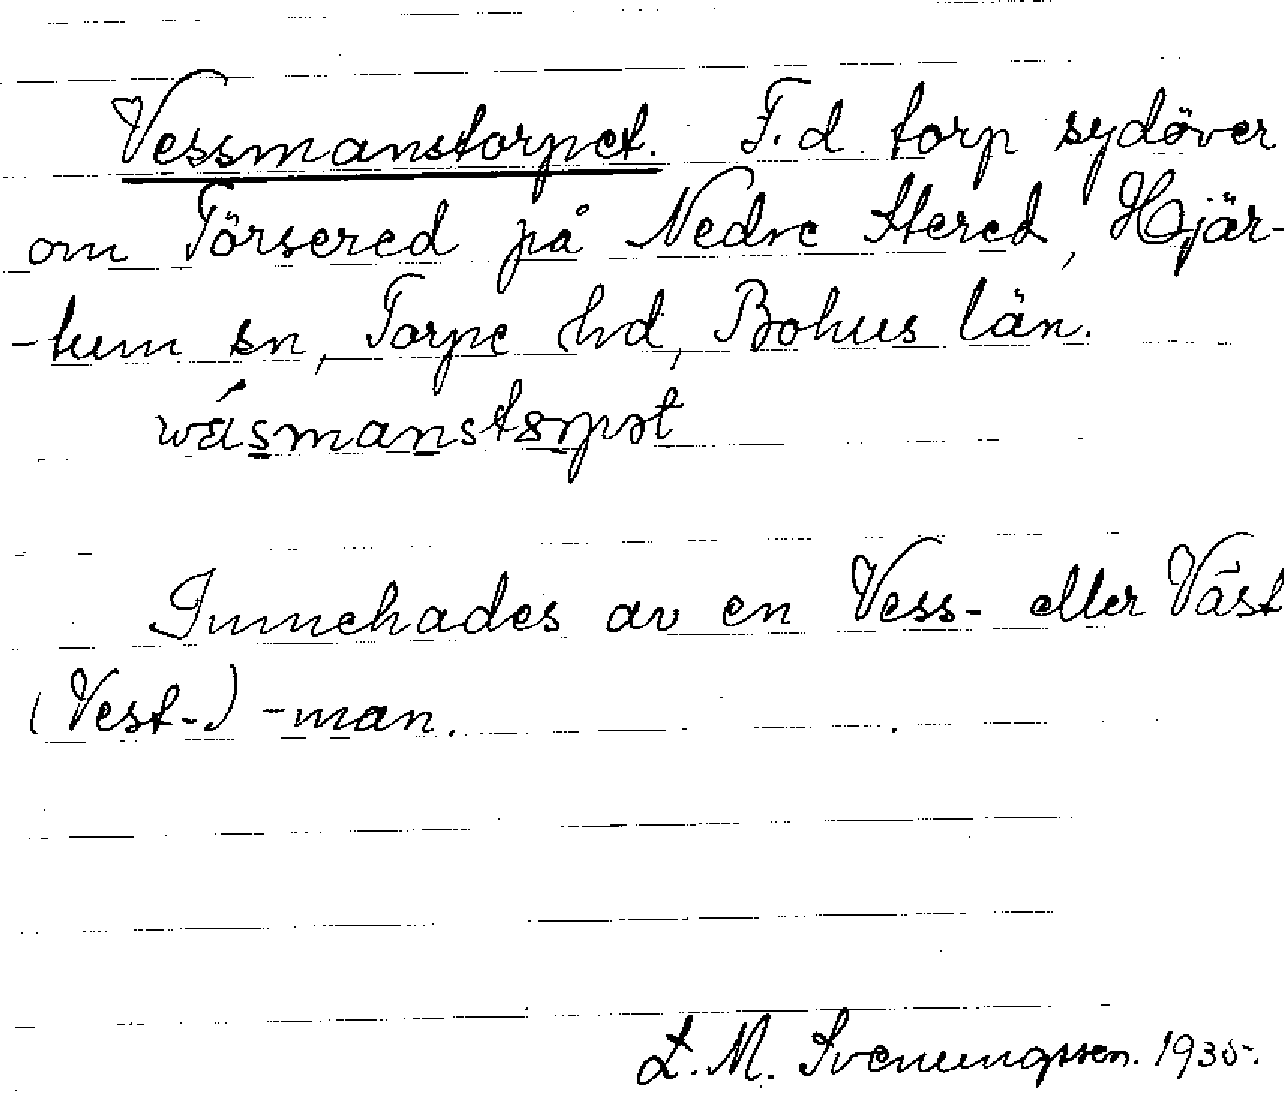 Vessmanstorpet. F.d. torp sydöver
om Törsered på Nedre Stered, Hjär-
-tum sn, Torpe hd, Bohus län.
Innehades av en Vess- eller Väst
(Vest-) -man.
L. M. Svenungsson. 1935.